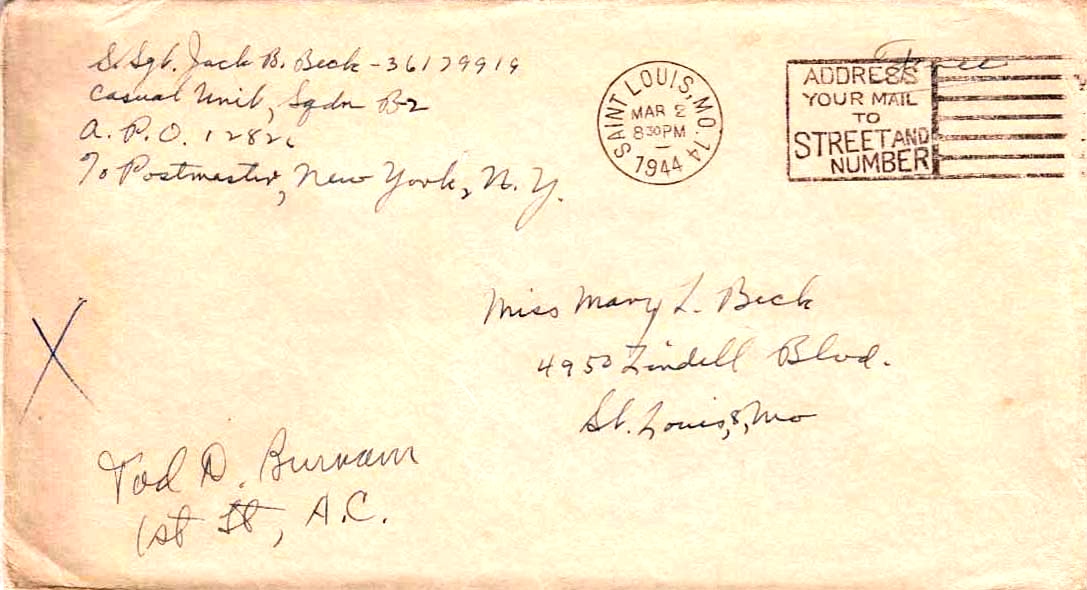 S. Sgt. Jack B. Beck - 36179919
Casual Unit, Sqdn B-2
A. P. O. 12826
% Postmaster, New York, N. Y.
Free
SAINT LOUIS, MO. 14
MAR 2
8 30 PM
1944
ADDRESS
YOUR MAIL
TO
STREET AND
NUMBER
Miss Mary L. Beck
4950 Lindell Blvd.
St. Louis, 8, Mo
X
Tod D. Burnam
1st Lt, A.C.